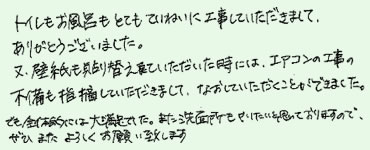 トイレもお風呂もとてもていねいに工事していただきまして、
ありがとうございました。
又、壁紙も貼り替えていただいた時には、エアコンの工事の
不備も指摘していただきまして、なおしていただくことができました。
でも全体的には大満足でした。また洗面所もぜひしたいと思っておりますので、
ぜひまたよろしくお願い致します